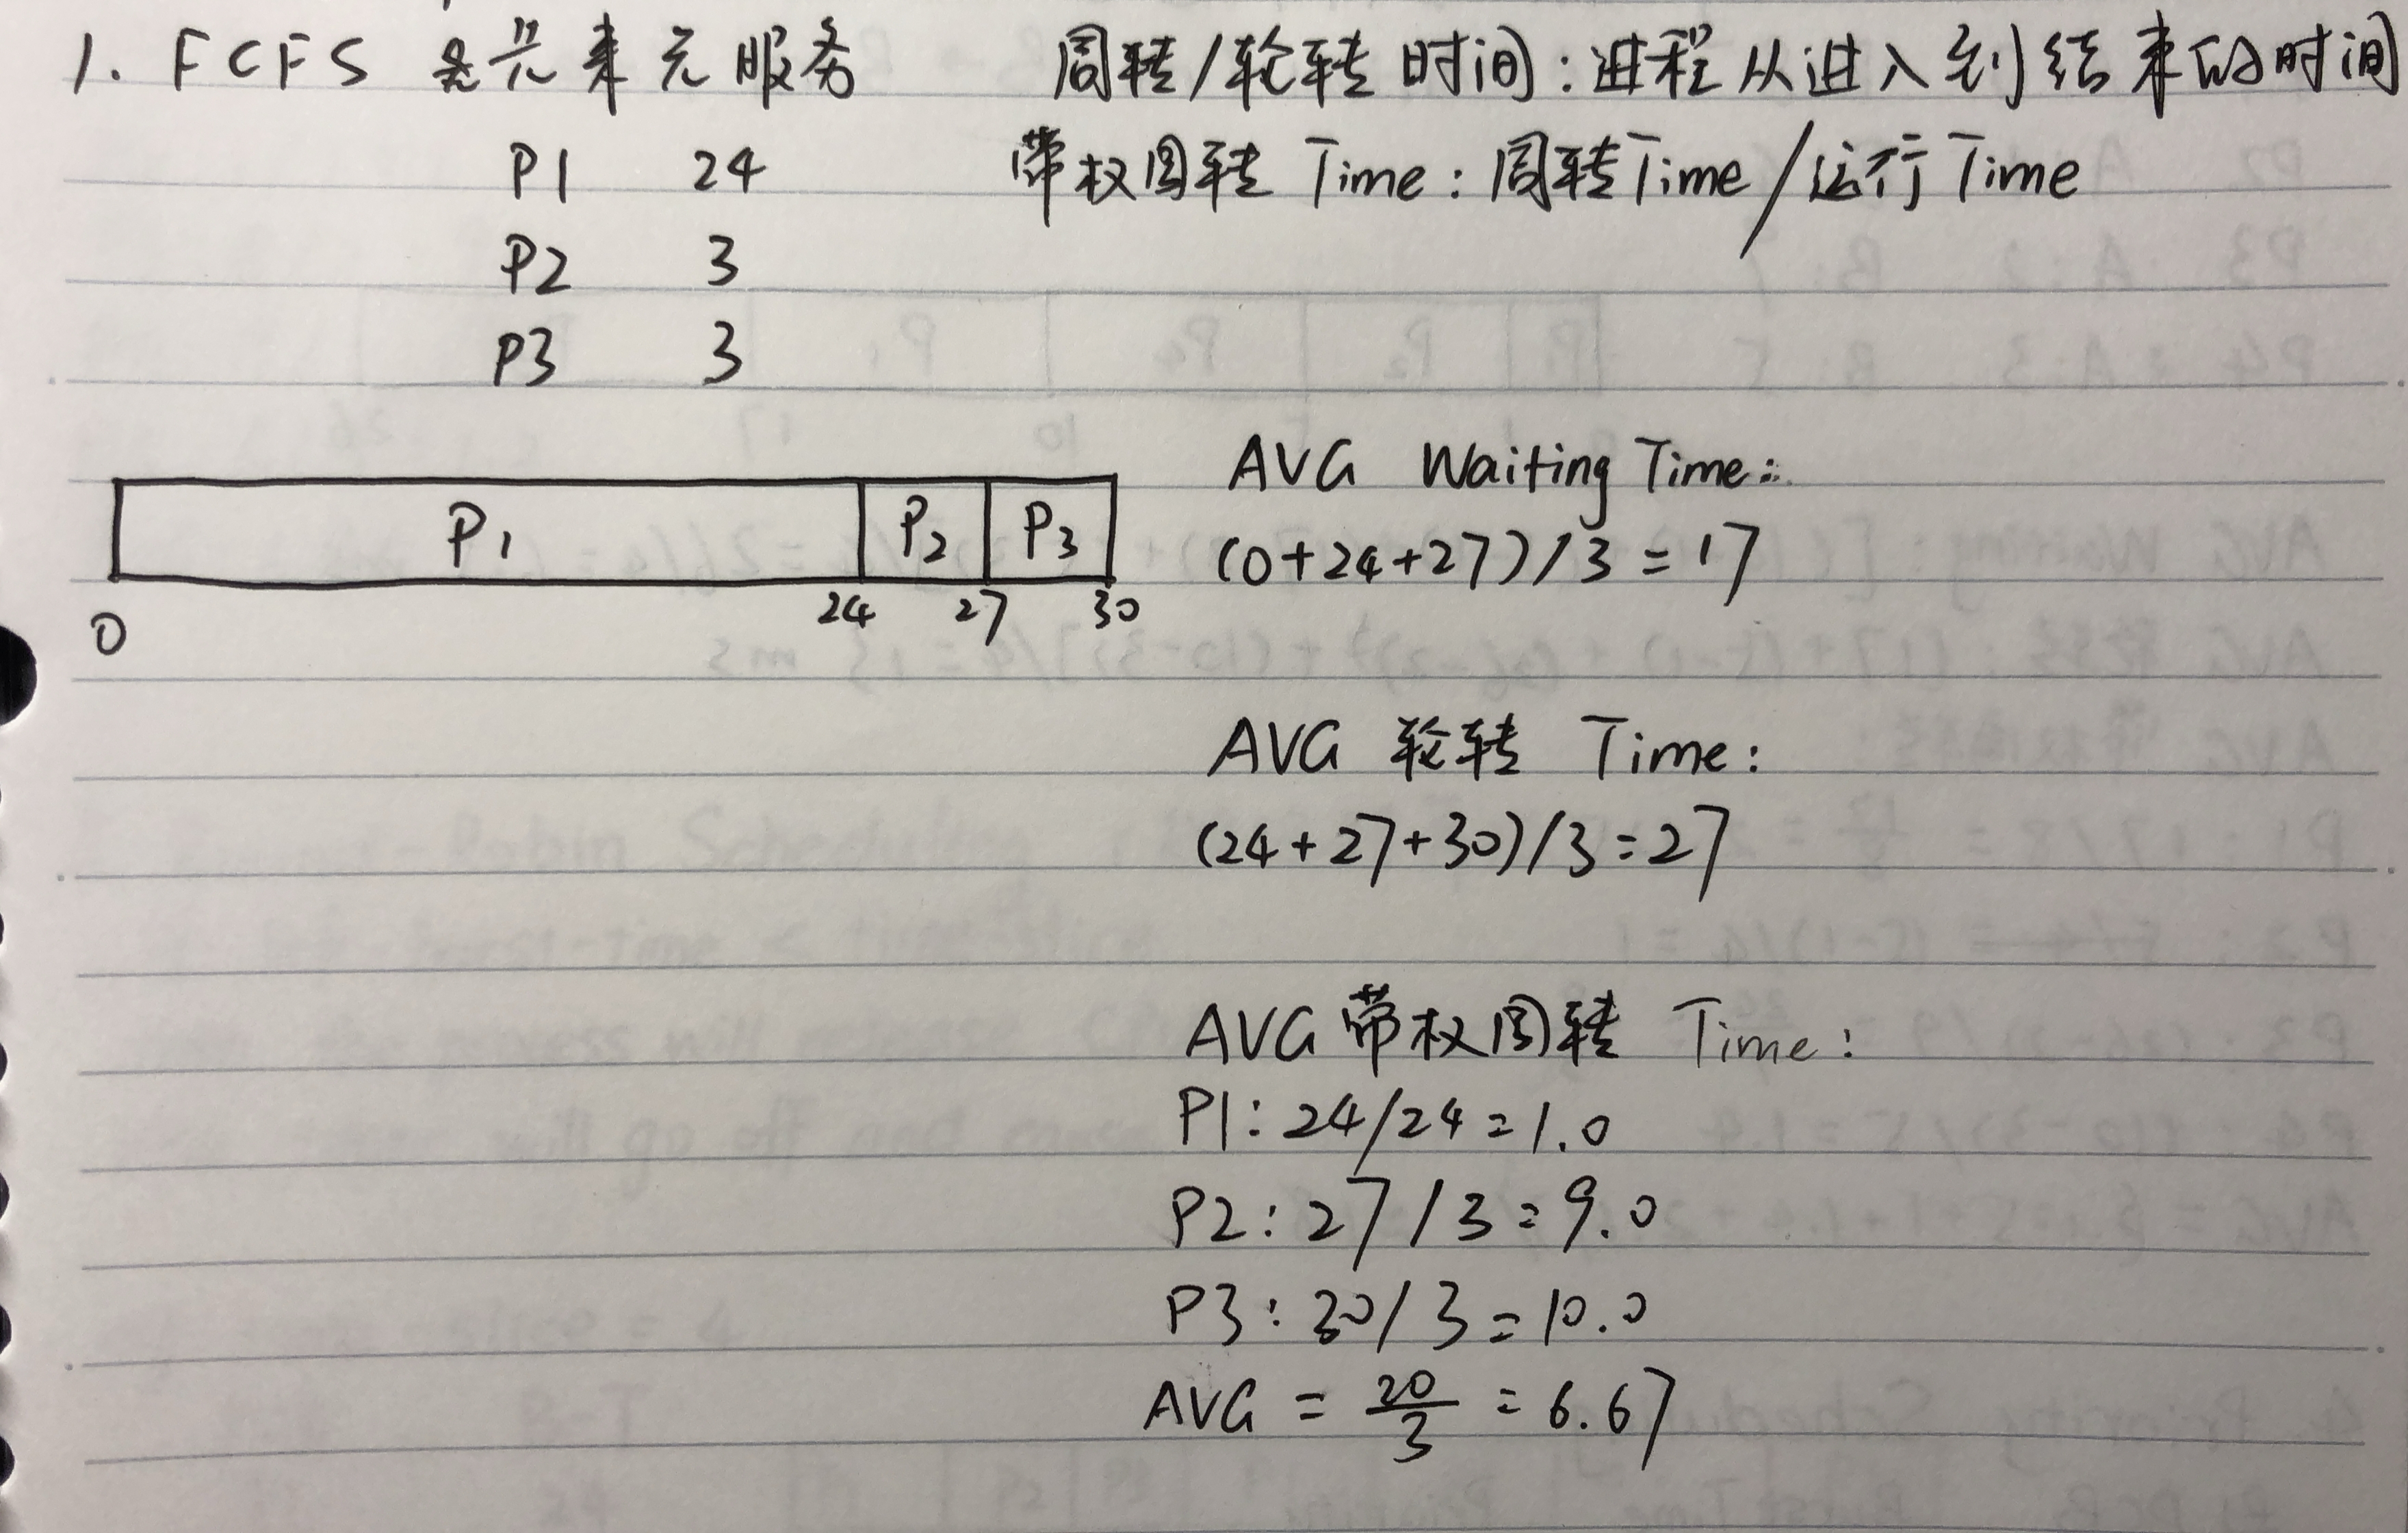 1. FCFS 是先来先服务
周转/轮转时间:进程从进入到结束的时间
P1 24
带权周转 Time: 周转Time/运行Time
P2 3
P3 3
P1 P2 P3
0 24 27 30
AVG Waiting Time:
(0+24+27)/3=17
AVG 轮转 Time:
(24+27+30)/3=27
AVG 带权周转 Time:
P1: 24/24=1.0
P2: 27/3=9.0
P3: 30/3=10.0
AVG = 20/3 = 6.67